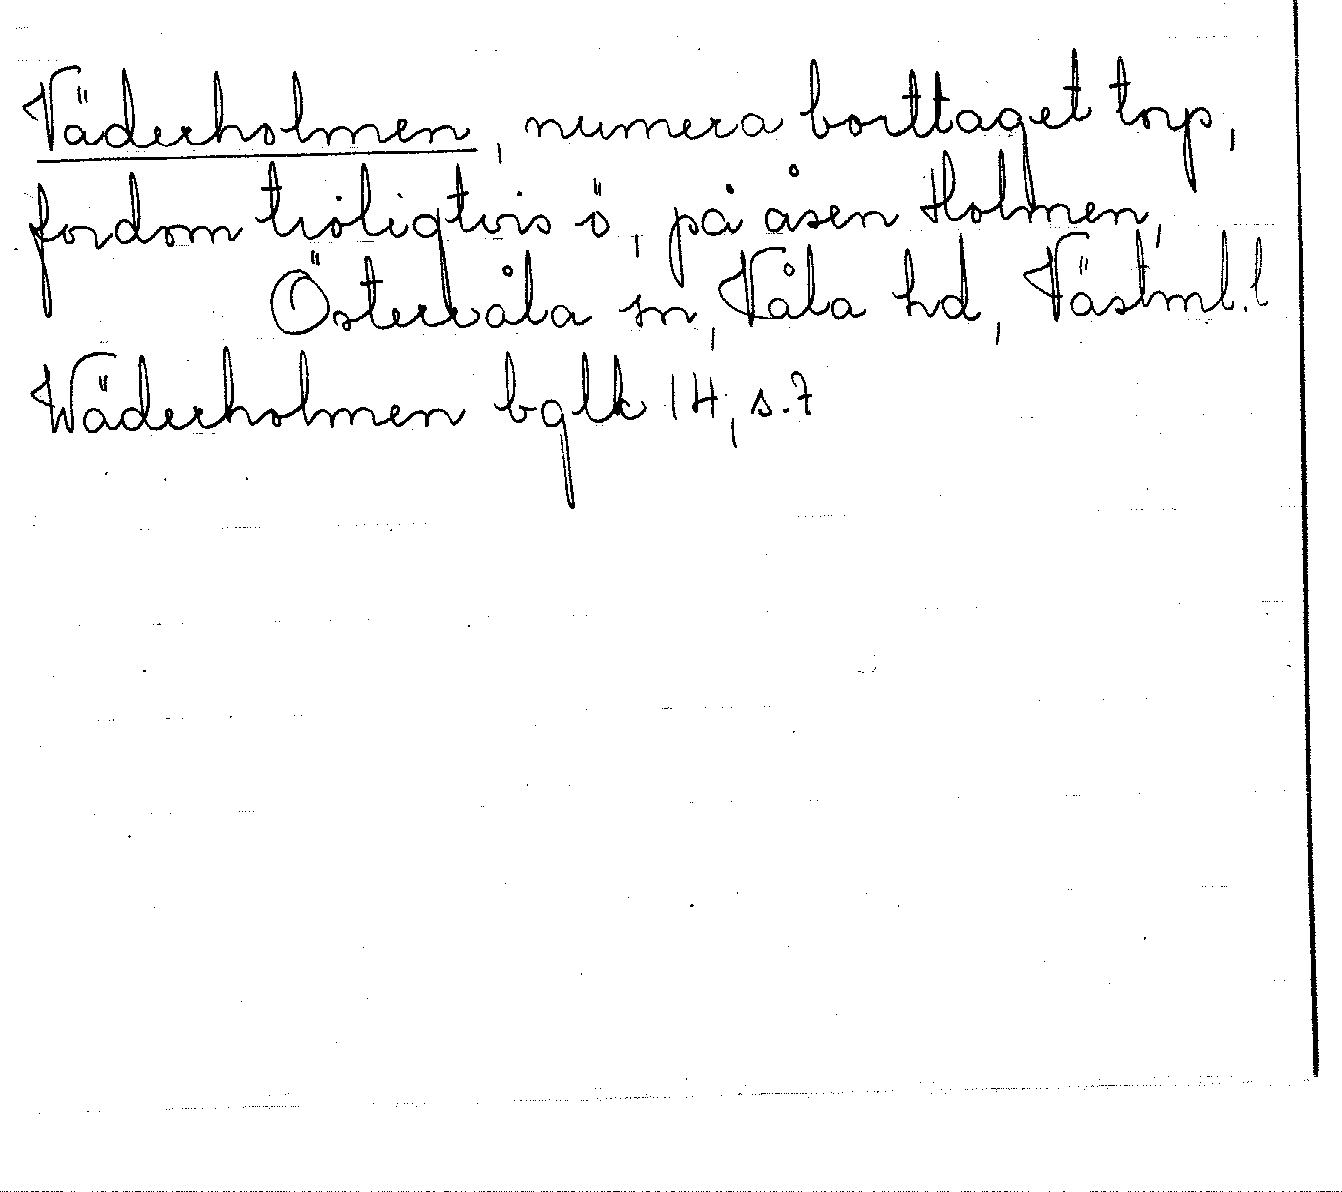 Väderholmen, numera borttaget torp,
fordom troligtvis ö, på åsen Holmen,
Östervåla sn, Våla hd, Västml. l
Wäderholmen bglk 14, s. 7